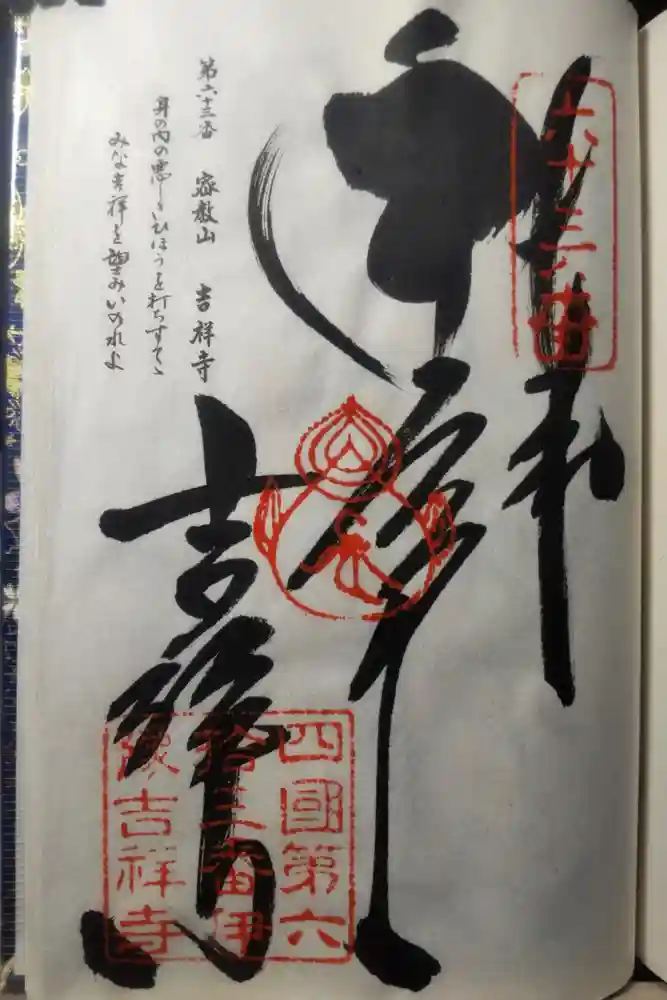 六十三番
奉拝
吉祥寺
第六十三番 密教山 吉祥寺
身の内の悪しきひほうを打ちすてゝ
みな吉祥を望みいのれよ
四國第六
拾三番伊
豫吉祥寺